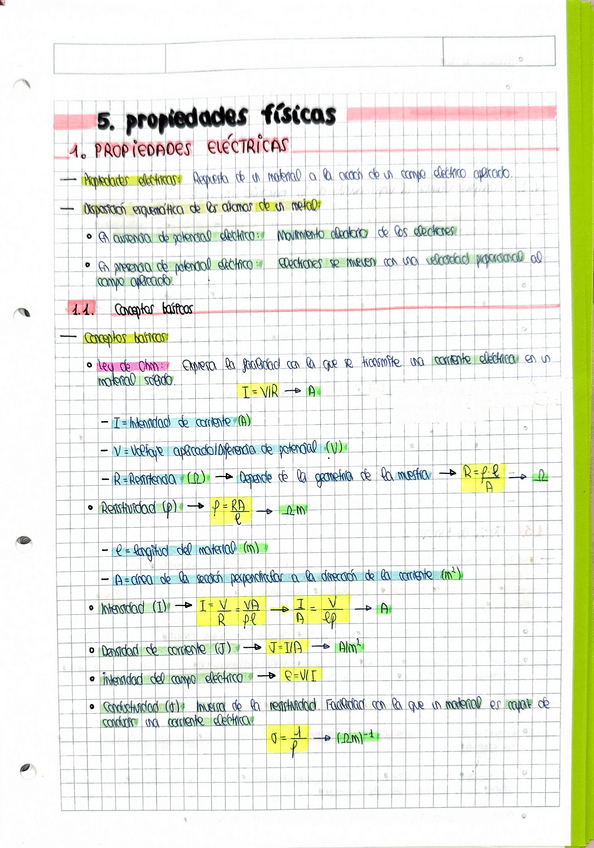 5. propiedades físicas
1. PROPIEDADES ELÉCTRICAS
— Propiedades eléctricas: Respuesta de un material a la acción de un campo eléctrico aplicado.
— Disposición esquemática de los átomos de un metal:
• En ausencia de potencial eléctrico: Movimiento aleatorio de los electrones
• En presencia de potencial eléctrico: Electrones se mueven con una velocidad proporcional al
campo aplicado.
1.1. Conceptos básicos
— Conceptos básicos:
• Ley de Ohm: Expresa la facilidad con la que se transmite una corriente eléctrica en un
material sólido.
I = V/R → A
- I = Intensidad de corriente (A)
- V = Voltaje aplicado/Diferencia de potencial (V)
- R = Resistencia (Ω) → Depende de la geometría de la muestra → R = ρ·ℓ/A → Ω
• Resistividad (ρ) → ρ = RA/ℓ → Ω·m
- ℓ = longitud del material (m)
- A = área de la sección perpendicular a la dirección de la corriente (m²)
• Intensidad (I) → I = V/R = VA/ρℓ → I/A = V/ℓρ → A
• Densidad de corriente (J) → J = I/A → A/m²
• intensidad del campo eléctrico → E = V/I
• Conductividad (σ): Inversa de la resistividad. Facilidad con la que un material es capaz de
conducir una corriente eléctrica
σ = 1/ρ → (Ωm)⁻¹